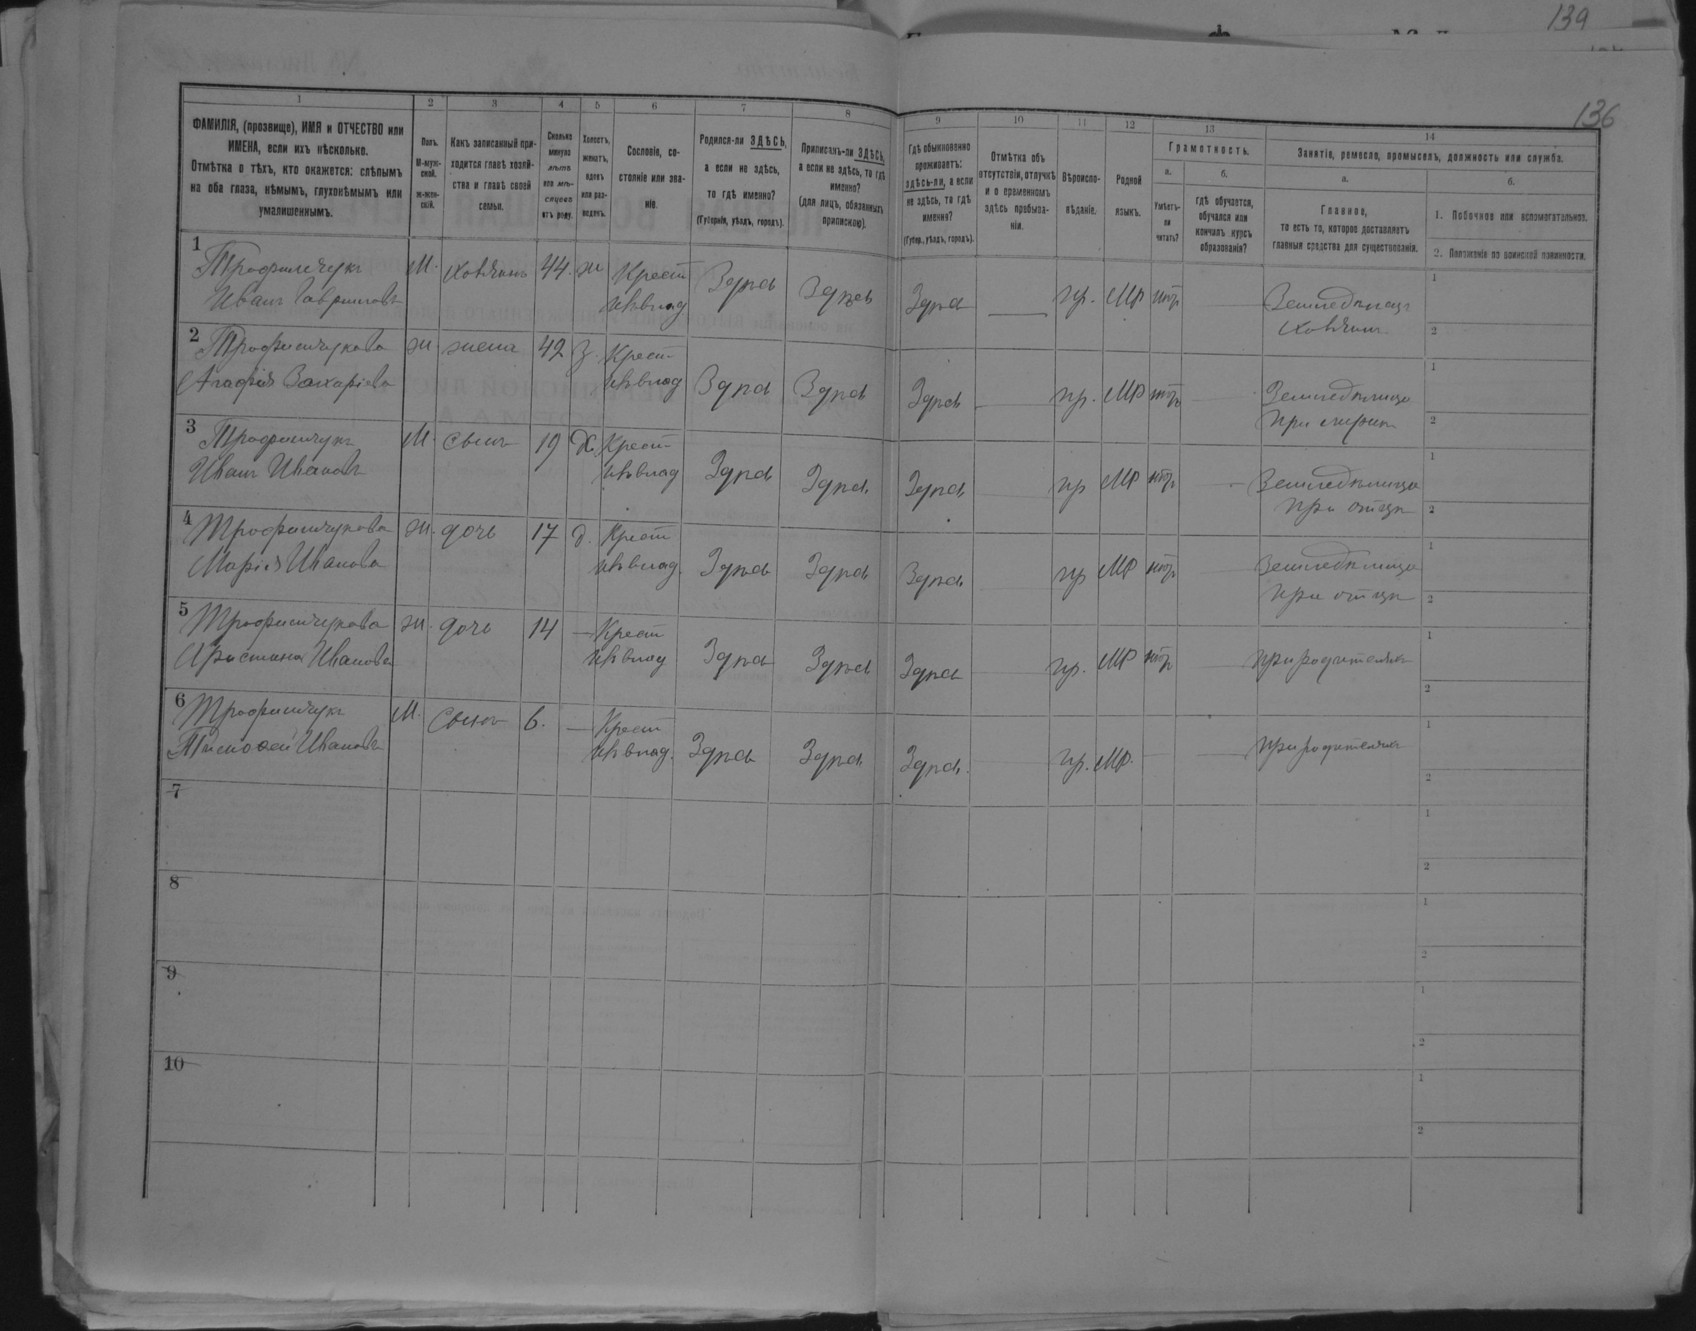 139
136
1
2
3
4
5
6
7
8
9
10
11
12
13
14
ФАМИЛІЯ, (прозвище), ИМЯ и ОТЧЕСТВО или
ИМЕНА, если ихъ нѣсколько.
Отмѣтка о тѣхъ, кто окажется: слѣпымъ
на оба глаза, нѣмымъ, глухонѣмымъ или
умалишеннымъ.
Полъ.
М-муж-
ской.
Ж-жен-
скій.
Какъ записанный при-
ходится главѣ хозяй-
ства и главѣ своей
семьи.
Сколько
минуло
лѣтъ
или мѣ-
сяцевъ
отъ роду.
Холостъ,
женатъ,
вдовъ
или раз-
веденъ.
Сословіе, со-
стояніе или зва-
ніе.
Родился-ли ЗДѢСЬ,
а если не здѣсь,
то гдѣ именно?
(Губернія, уѣздъ, городъ).
Приписанъ-ли ЗДѢСЬ,
а если не здѣсь, то гдѣ
именно?
(для лицъ, обязанныхъ
припискою).
Гдѣ обыкновенно
проживаетъ:
здѣсь-ли, а если
не здѣсь, то гдѣ
именно?
(Губер., уѣздъ, городъ).
Отмѣтка объ
отсутствіи, отлучкѣ
и о временномъ
здѣсь пребыва-
ніи.
Вѣроиспо-
вѣданіе.
Родной
языкъ.
Грамотность.
а.
Умѣетъ-
ли
читать?
б.
Гдѣ обучается,
обучался или
кончилъ курсъ
образованія?
Занятіе, ремесло, промыселъ, должность или служба.
а.
Главное,
то есть то, которое доставляетъ
главныя средства для существованія.
б.
1. Побочное или вспомогательное.
2. Положеніе по воинской повинности.
1
Трофимчукъ М. хозяинъ 44. ж Крест Здѣсь Здѣсь Здѣсь пр. МР нѣтъ Земледѣлецъ 1
Иванъ Гавриловъ хозяинъ 2
2
Трофимчукова ж жена 42 з. Крест Здѣсь Здѣсь Здѣсь пр. МР нѣтъ Земледѣлица 1
Агафія Захаріева При мужѣ 2
3
Трофимчукъ М. сынъ 19 х. Крест Здѣсь Здѣсь Здѣсь пр МР нѣтъ Земледѣлица 1
Иванъ Ивановъ при отцѣ 2
4
Трофимчукова ж. дочь 17 д. Крест Здѣсь Здѣсь Здѣсь пр МР нѣтъ Земледѣлица 1
Марія Иванова при отцѣ 2
5
Трофимчукова ж. дочь 14 Крест Здѣсь Здѣсь Здѣсь пр. МР нѣтъ при родителяхъ 1
Христина Иванова 2
6
Трофимчукъ М. сынъ 6. Крест Здѣсь Здѣсь Здѣсь. пр. МР. при родителяхъ 1
Тимофей Ивановъ 2
7
1
2
8
1
2
9
1
2
10
1
2